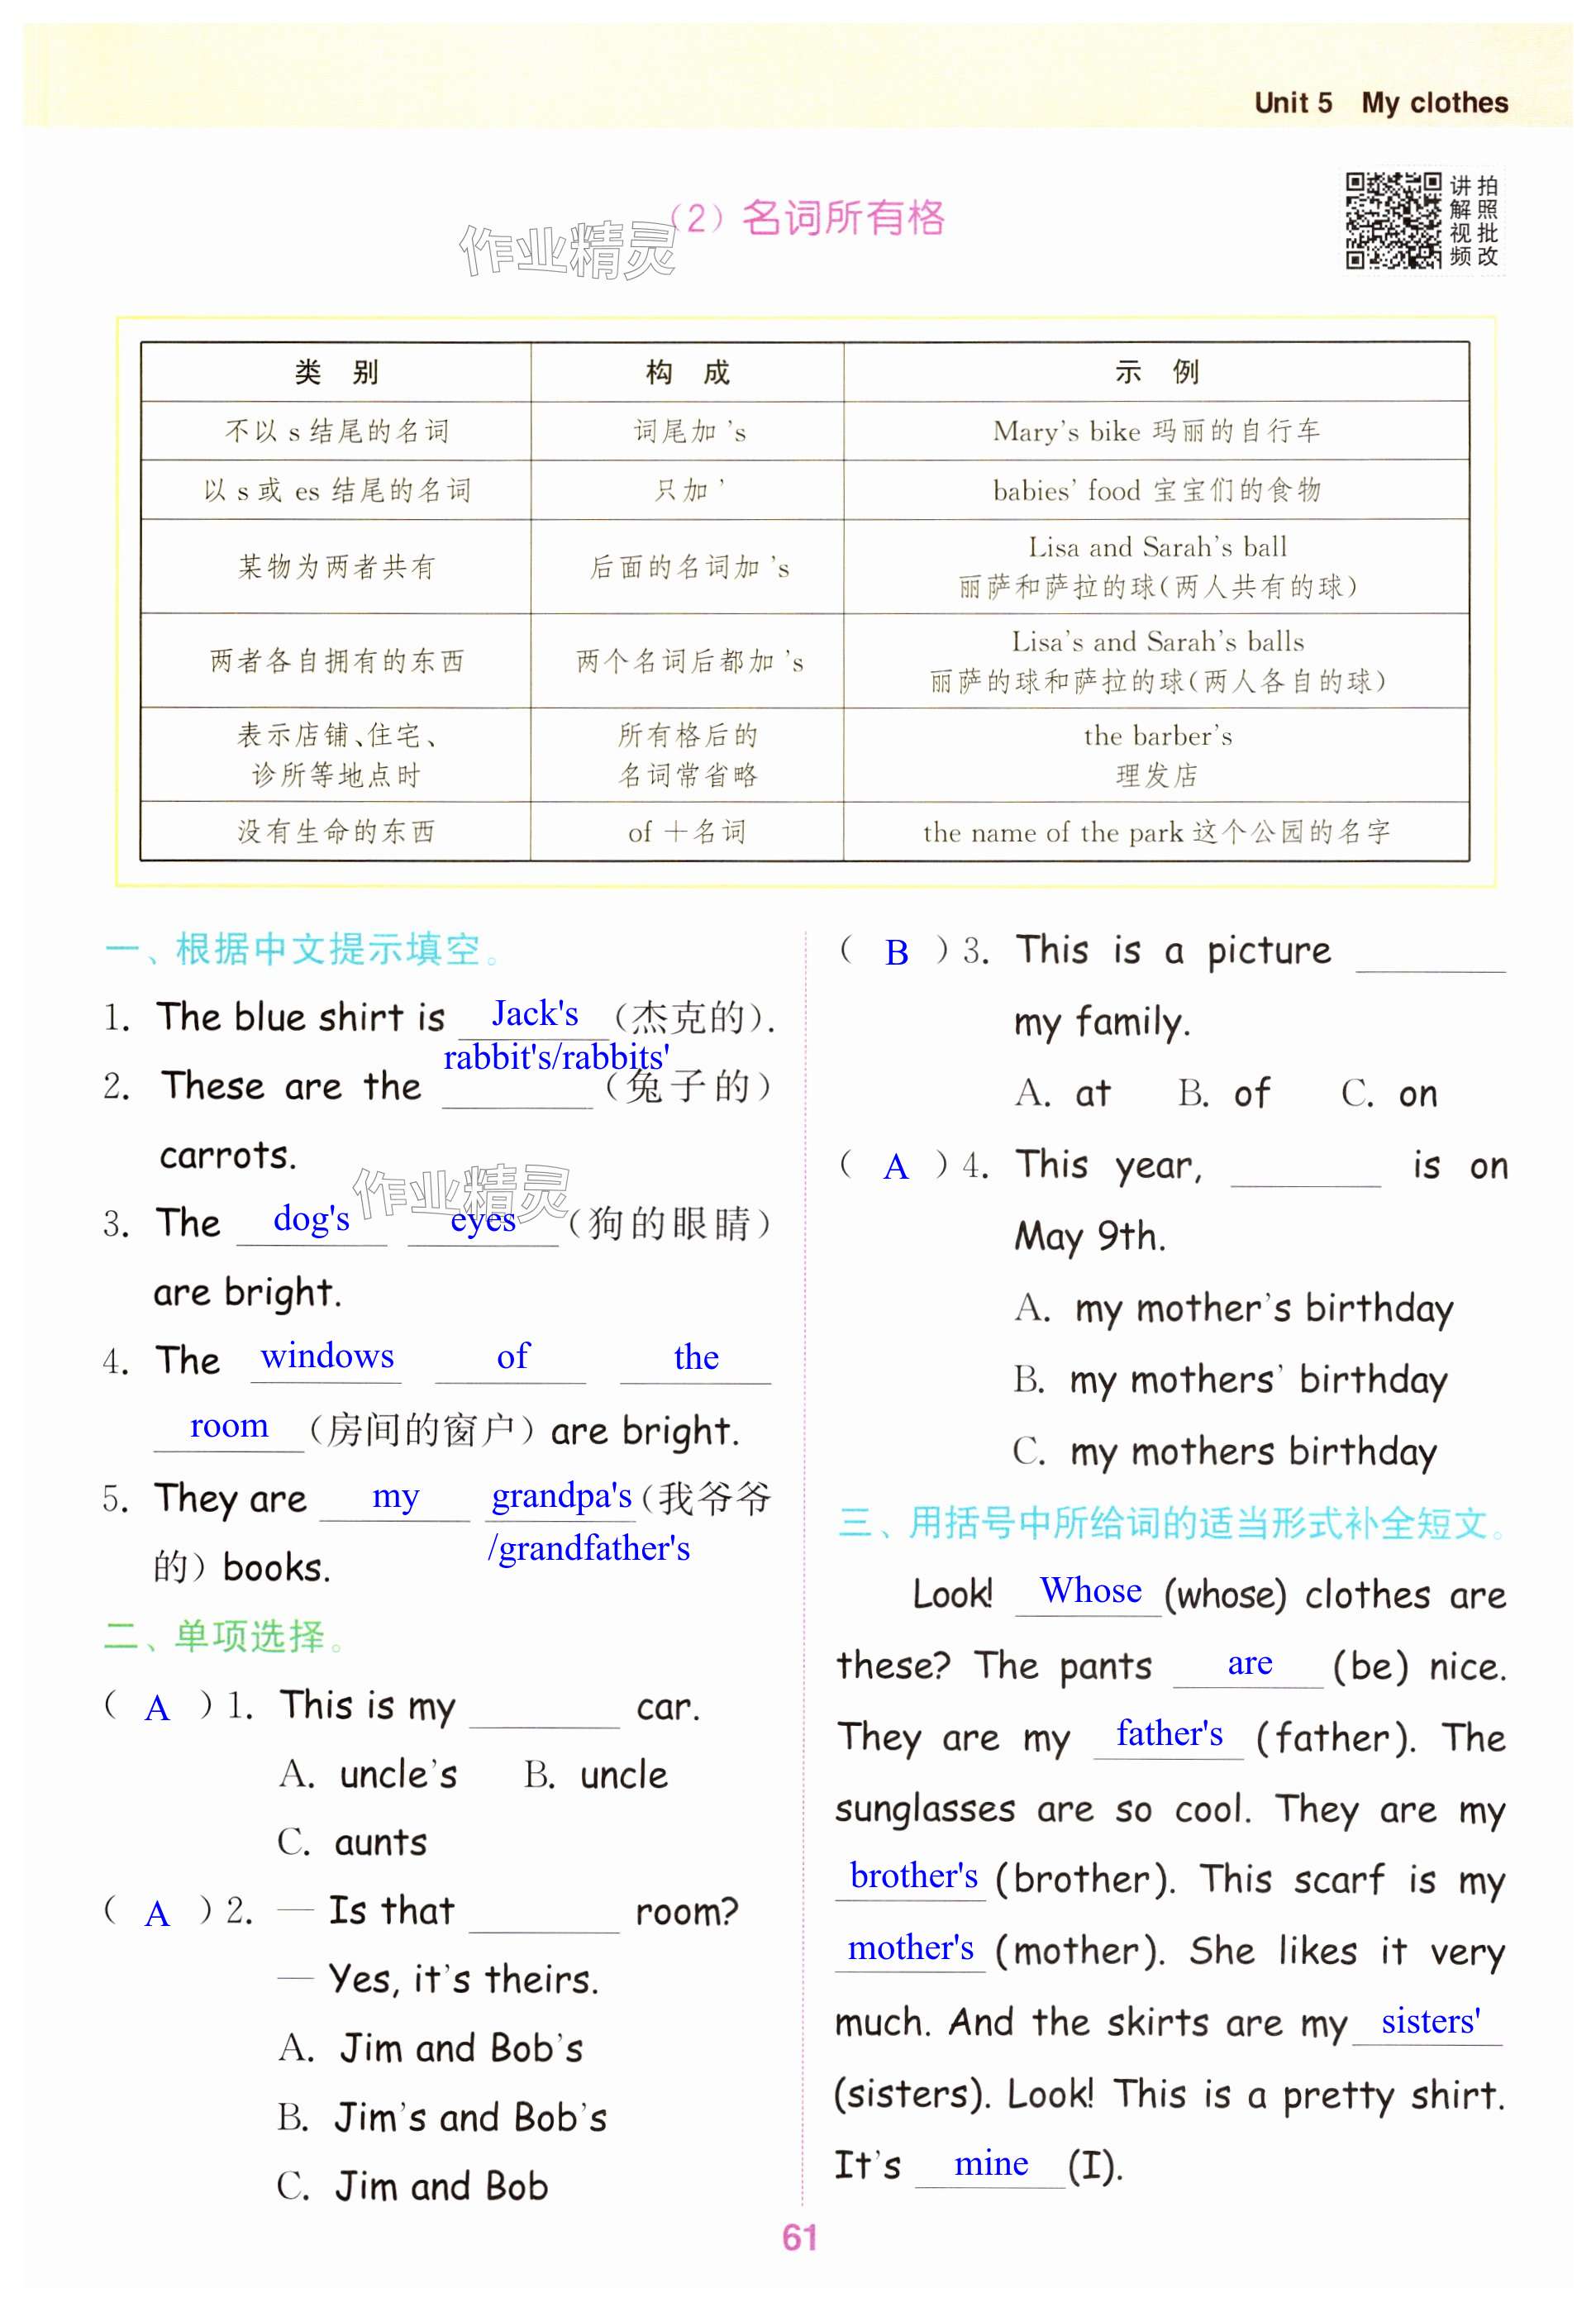 Unit 5 My clothes
(2) 名词所有格
作业精灵
讲解视频
拍照批改
类 别 构 成 示 例
不以 s 结尾的名词 词尾加 's Mary's bike 玛丽的自行车
以 s 或 es 结尾的名词 只加 ' babies' food 宝宝们的食物
某物为两者共有 后面的名词加 's Lisa and Sarah's ball
丽萨和萨拉的球(两人共有的球)
两者各自拥有的东西 两个名词后都加 's Lisa's and Sarah's balls
丽萨的球和萨拉的球(两人各自的球)
表示店铺、住宅、
诊所等地点时 所有格后的
名词常省略 the barber's
理发店
没有生命的东西 of +名词 the name of the park 这个公园的名字
一、根据中文提示填空。
1. The blue shirt is Jack's (杰克的).
rabbit's/rabbits'
2. These are the ______ (兔子的)
carrots.
作业精灵
3. The dog's eyes (狗的眼睛)
are bright.
4. The windows of the
room (房间的窗户) are bright.
5. They are my grandpa's (我爷爷
/grandfather's
的) books.
二、单项选择。
( A ) 1. This is my ______ car.
A. uncle's B. uncle
C. aunts
( A ) 2. — Is that ______ room?
— Yes, it's theirs.
A. Jim and Bob's
B. Jim's and Bob's
C. Jim and Bob
( B ) 3. This is a picture ______
my family.
A. at B. of C. on
( A ) 4. This year, ______ is on
May 9th.
A. my mother's birthday
B. my mothers' birthday
C. my mothers birthday
三、用括号中所给词的适当形式补全短文。
Look! Whose (whose) clothes are
these? The pants are (be) nice.
They are my father's (father). The
sunglasses are so cool. They are my
brother's (brother). This scarf is my
mother's (mother). She likes it very
much. And the skirts are my sisters'
(sisters). Look! This is a pretty shirt.
It's mine (I).
61